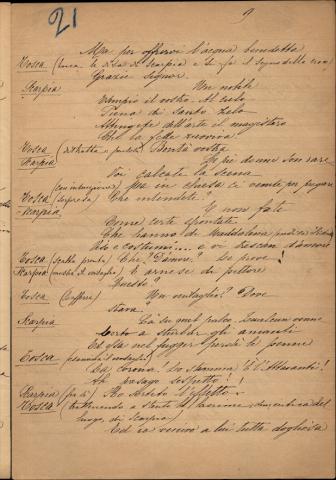 21
9
Ma per offrirvi l'acqua benedetta
Tosca (tocca le dita di Scarpia e si fa il segno della croce)
Grazie signor.
Scarpia Un nobile
Esempio il vostro. Al cielo
Piena di santo zelo
Attingete dell'arte il magistero
Che la fede ravviva
Tosca (distratta e) Bontà vostra
Scarpia Le pie donne son rare
Voi calcate la scena
(con intenzione) Ma in chiesa ci venite per pregare
Tosca (sorpresa) Che intendete?
Scarpia E non fate
Come certe sfrontate
Che hanno di Maddalena
viso e costumi... e vi trescan d'amore
Tosca (scatto pronta) Che? D'amore? Le prove!
Scarpia (mostra il ventaglio) È arnese da pittore
Questo?
Tosca (l'afferra) Un ventaglio? Dove
stava?
Scarpia Là su quel palco. Qualcun venne
Certo a sturbar gli amanti
Ed essa nel fuggir perdè le penne
Tosca (esaminando il ventaglio)
La corona! Lo stemma! È l'Attavanti!
Ah presago sospetto!
Scarpia (fra sè) Ho sortito l'effetto.
Tosca (trattenendo a stento le lagrime, dimentica del
luogo, di Scarpia)
Ed io venivo a lui tutta dogliosa